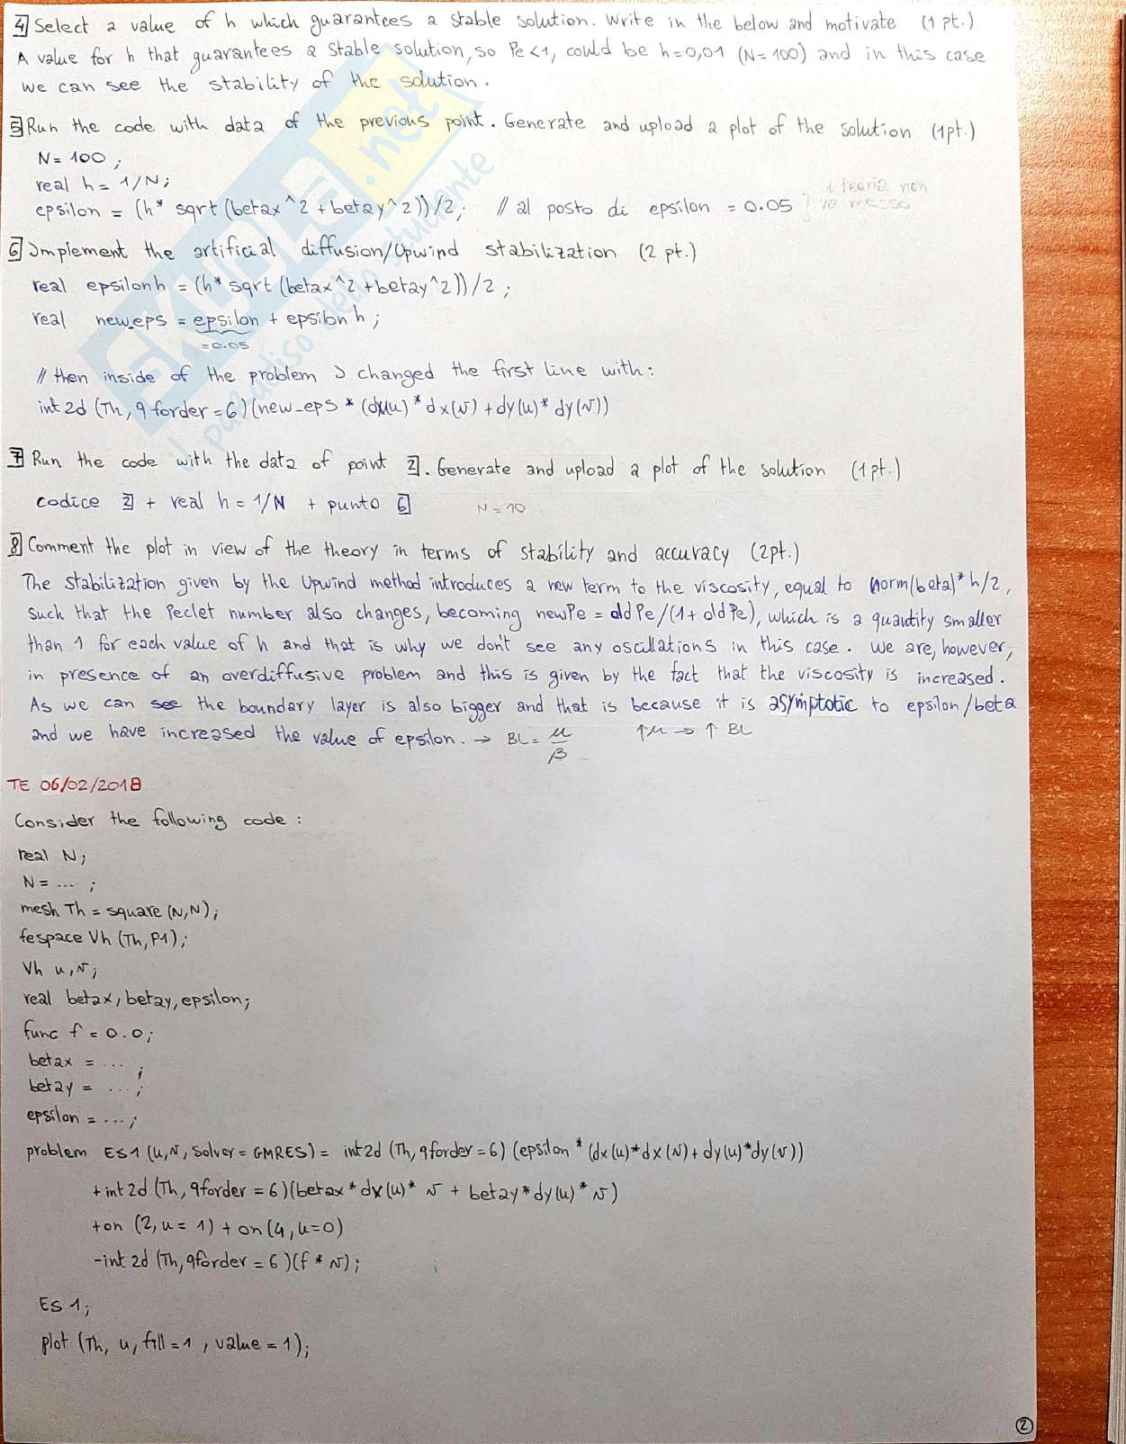 4 Select a value of h which guarantees a stable solution. Write in the below and motivate (1 pt.)
A value for h that guarantees a stable solution, so Pe<1, could be h=0,01 (N=100) and in this case
we can see the stability of the solution.
5 Run the code with data of the previous point. Generate and upload a plot of the solution (1pt.)
N=100;
real h=1/N;
epsilon = (h* sqrt(betax^2+betay^2))/2; // al posto di epsilon = 0.05
teoria non
va messo
6 Implement the artificial diffusion/Upwind stabilization (2 pt.)
real epsilonh = (h* sqrt(betax^2+betay^2))/2;
real new_eps = epsilon + epsilonh;
=0.05
// then inside of the problem I changed the first line with:
int2d(Th, qforder=6)(new_eps * (dx(u)*dx(v)+dy(u)*dy(v))
7 Run the code with the data of point 2. Generate and upload a plot of the solution (1pt.)
codice 2 + real h=1/N + punto 6 N=10
8 Comment the plot in view of the theory in terms of stability and accuracy (2pt.)
The stabilization given by the Upwind method introduces a new term to the viscosity, equal to norm(beta)*h/2,
such that the Peclet number also changes, becoming newPe = oldPe/(1+oldPe), which is a quantity smaller
than 1 for each value of h and that is why we don't see any oscillations in this case. We are, however,
in presence of an overdiffusive problem and this is given by the fact that the viscosity is increased.
As we can see the boundary layer is also bigger and that is because it is asymptotic to epsilon/beta
and we have increased the value of epsilon. → BL = μ/β ↑μ → ↑BL
TE 06/02/2018
Consider the following code:
real N;
N= ... ;
mesh Th = square(N,N);
fespace Vh(Th,P1);
Vh u,v;
real betax, betay, epsilon;
func f = 0.0;
betax = ... ;
betay = ... ;
epsilon = ... ;
problem ES1(u,v, solver=GMRES) = int2d(Th, qforder=6)(epsilon*(dx(u)*dx(v)+dy(u)*dy(v))
+int2d(Th, qforder=6)(betax*dx(u)*v + betay*dy(u)*v)
+on(2,u=1)+on(4,u=0)
-int2d(Th,qforder=6)(f*v);
ES1;
plot(Th, u, fill=1, value=1);
2